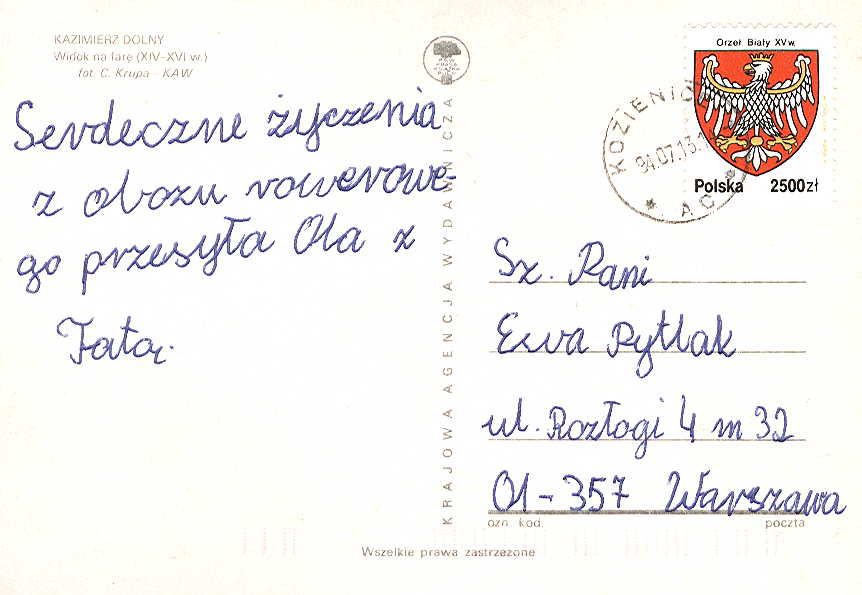 KAZIMIERZ DOLNY
Widok na farę (XIV–XVI w.)
fot. C. Krupa – KAW
Serdeczne życzenia
z obozu rowerowe-
go przesyła Ola z
Tatą.
KRAJOWA AGENCJA WYDAWNICZA
Orzeł Biały XV w.
Polska 2500zł
KOZIENI
94.07.13
* A C *
Sz. Pani
Ewa Pytlak
ul. Rozłogi 4 m 32
01-357 Warszawa
ozn. kod. poczta
Wszelkie prawa zastrzeżone